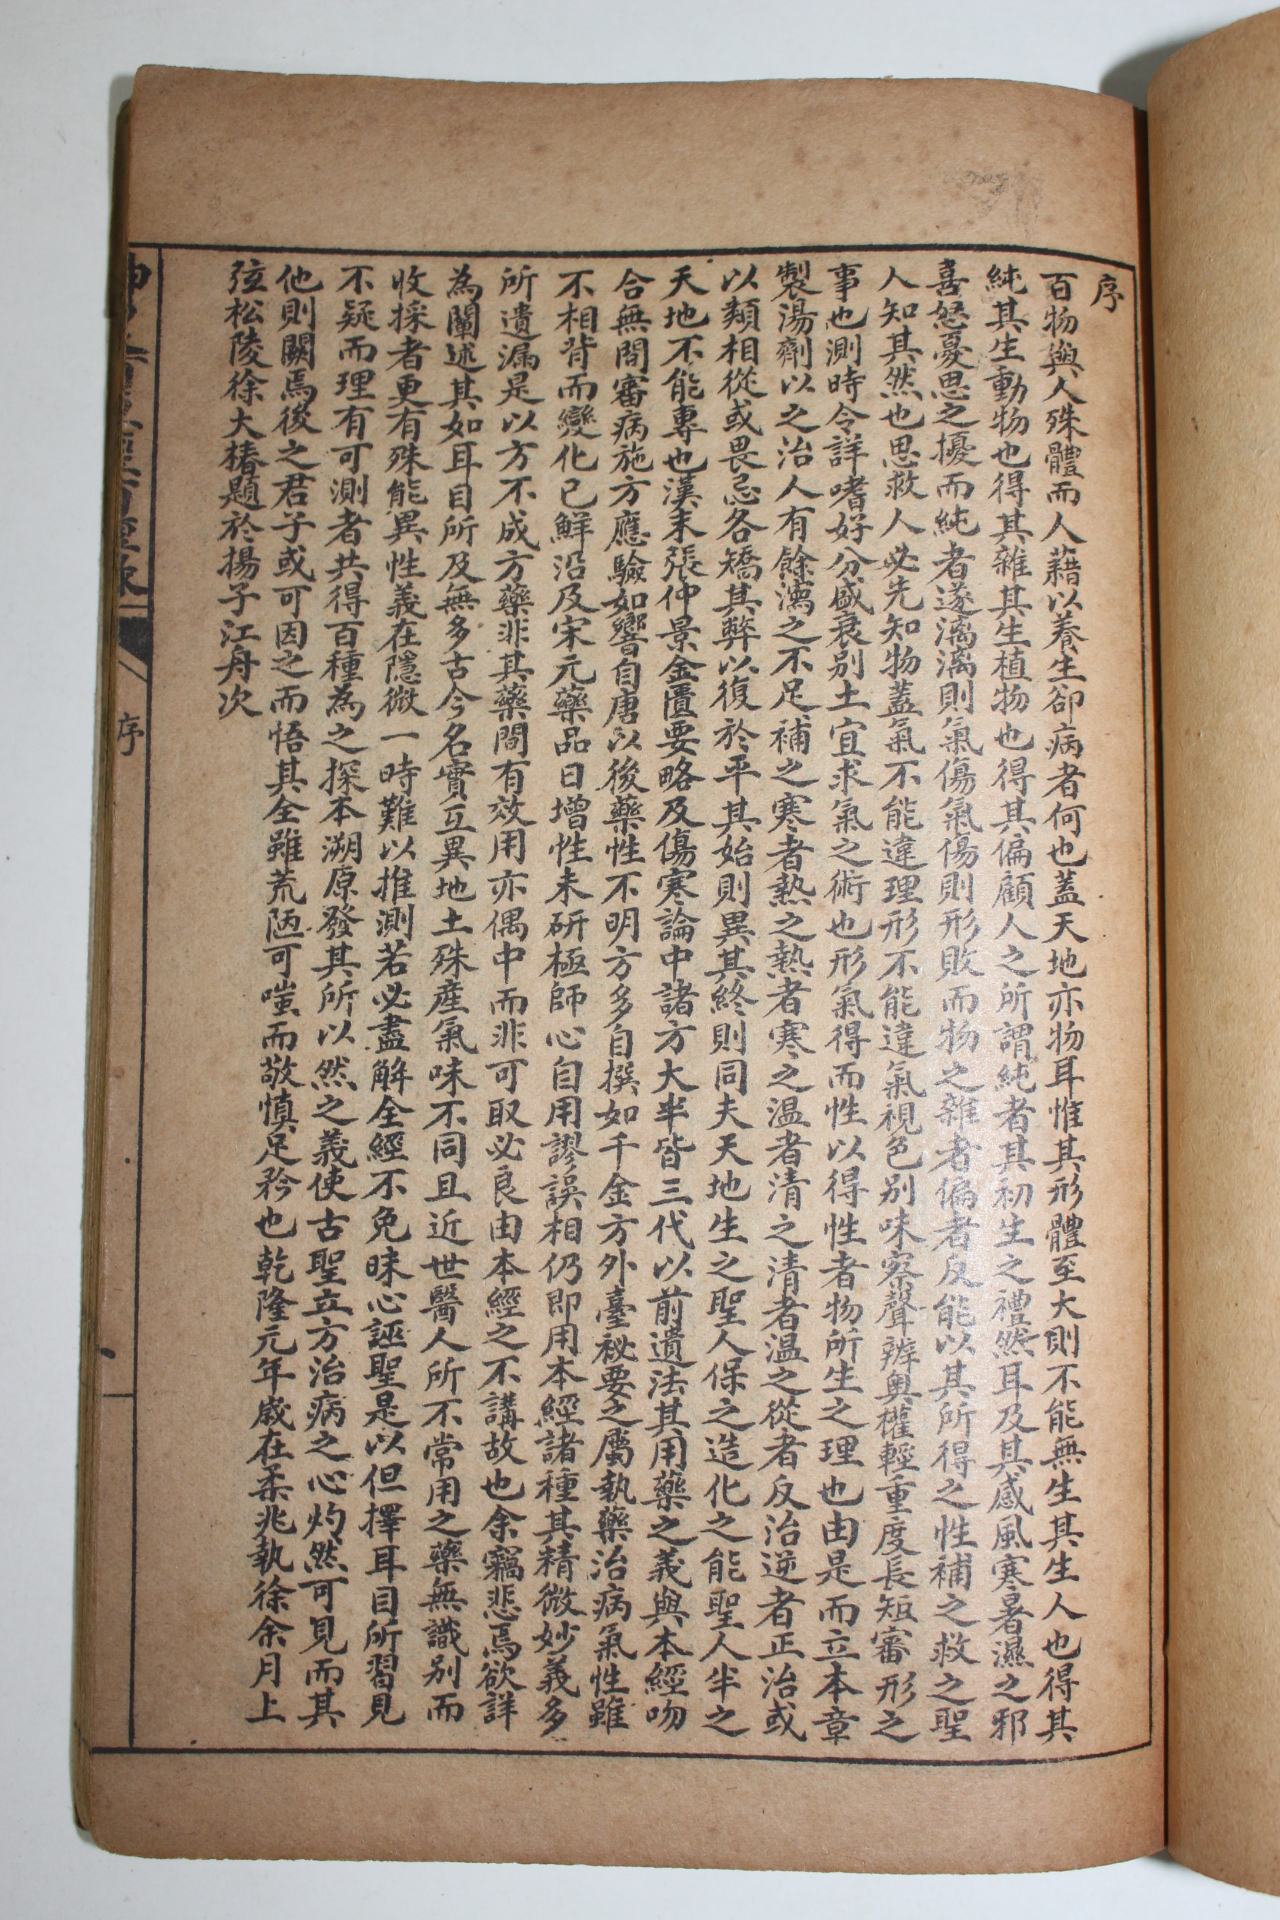 序
百物與人殊體而人藉以養生卻病者何也蓋天地亦物耳惟其形體至大則不能無生其生人也得其
純其生動物也得其雜其生植物也得其偏顧人之所謂純者其初生之禮然耳及其感風寒暑濕之邪
喜怒憂思之擾而純者遂漓漓則氣傷氣傷則形敗而物之雜者偏者反能以其所得之性補之救之聖
人知其然也思救人必先知物蓋氣不能違理形不能違氣視色別味察聲辨臭權輕重度長短審形之
事也測時令詳嗜好分盛衰別土宜求氣之術也形氣得而性以得性者物所生之理也由是而立本章
製湯劑以之治人有餘瀉之不足補之寒者熱之熱者寒之温者清之清者温之從者反治逆者正治或
以類相從或畏忌各矯其弊以復於平其始則異其終則同夫天地生之聖人保之造化之能聖人半之
天地不能專也漢末張仲景金匱要略及傷寒論中諸方大半皆三代以前遺法其用藥之義與本經吻
合無間審病施方應驗如響自唐以後藥性不明方多自撰如千金方外臺祕要之屬執藥治病氣性雖
不相背而變化已鮮沿及宋元藥品日增性未研極師心自用謬誤相仍即用本經諸種其精微妙義多
所遺漏是以方不成方藥非其藥間有效用亦偶中而非可取必良由本經之不講故也余竊悲焉欲詳
為闡述其如耳目所及無多古今名實互異地土殊產氣味不同且近世醫人所不常用之藥無識別而
收採者更有殊能異性義在隱微一時難以推測若必盡解全經不免昧心誣聖是以但擇耳目所習見
不疑而理有可測者共得百種為之探本溯原發其所以然之義使古聖立方治病之心灼然可見而其
他則闕焉後之君子或可因之而悟其全雖荒陋可嗤而敬慎足矜也乾隆元年歲在柔兆執徐余月上
弦松陵徐大椿題於揚子江舟次
序